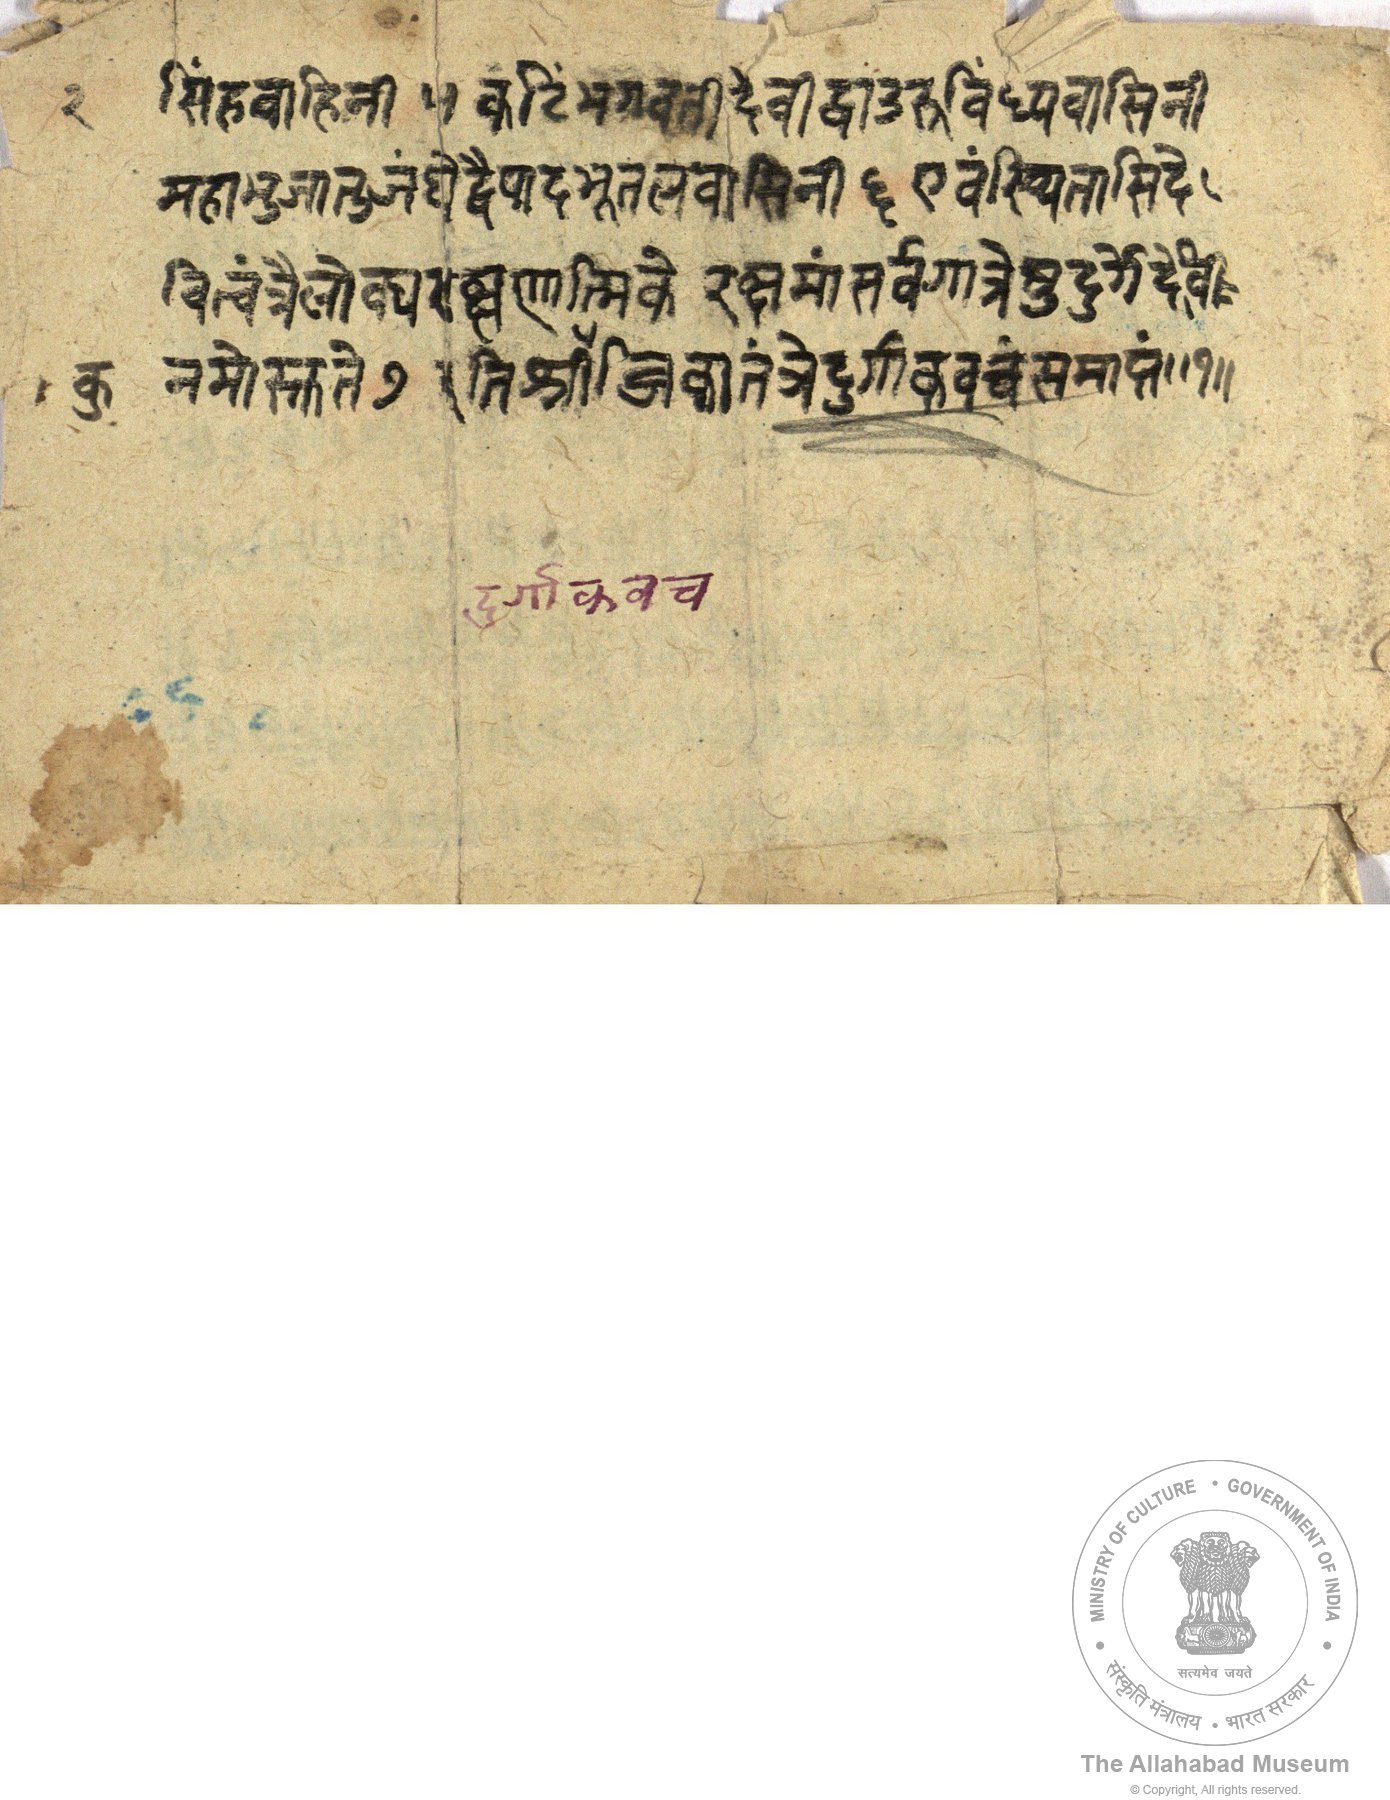 २ सिंहवाहिनी ५ कटिं भगवती देवी द्वाउरू विंध्यवासिनी
महाभुजातुजंघे द्वैपादभूतलवासिनी ६ एवंस्थितासिदे
वित्वंत्रैलोक्यरक्षणात्मिके रक्षमांसर्वगात्रेषुदुर्गेदेवी
कु नमोस्तुते ७ इतिश्री कुब्जिकातंत्रेदुर्गाकवचंसमाप्तं॥१॥
दुर्गाकवच
MINISTRY OF CULTURE • GOVERNMENT OF INDIA
सत्यमेव जयते
संस्कृति मंत्रालय • भारत सरकार
The Allahabad Museum
© Copyright, All rights reserved.